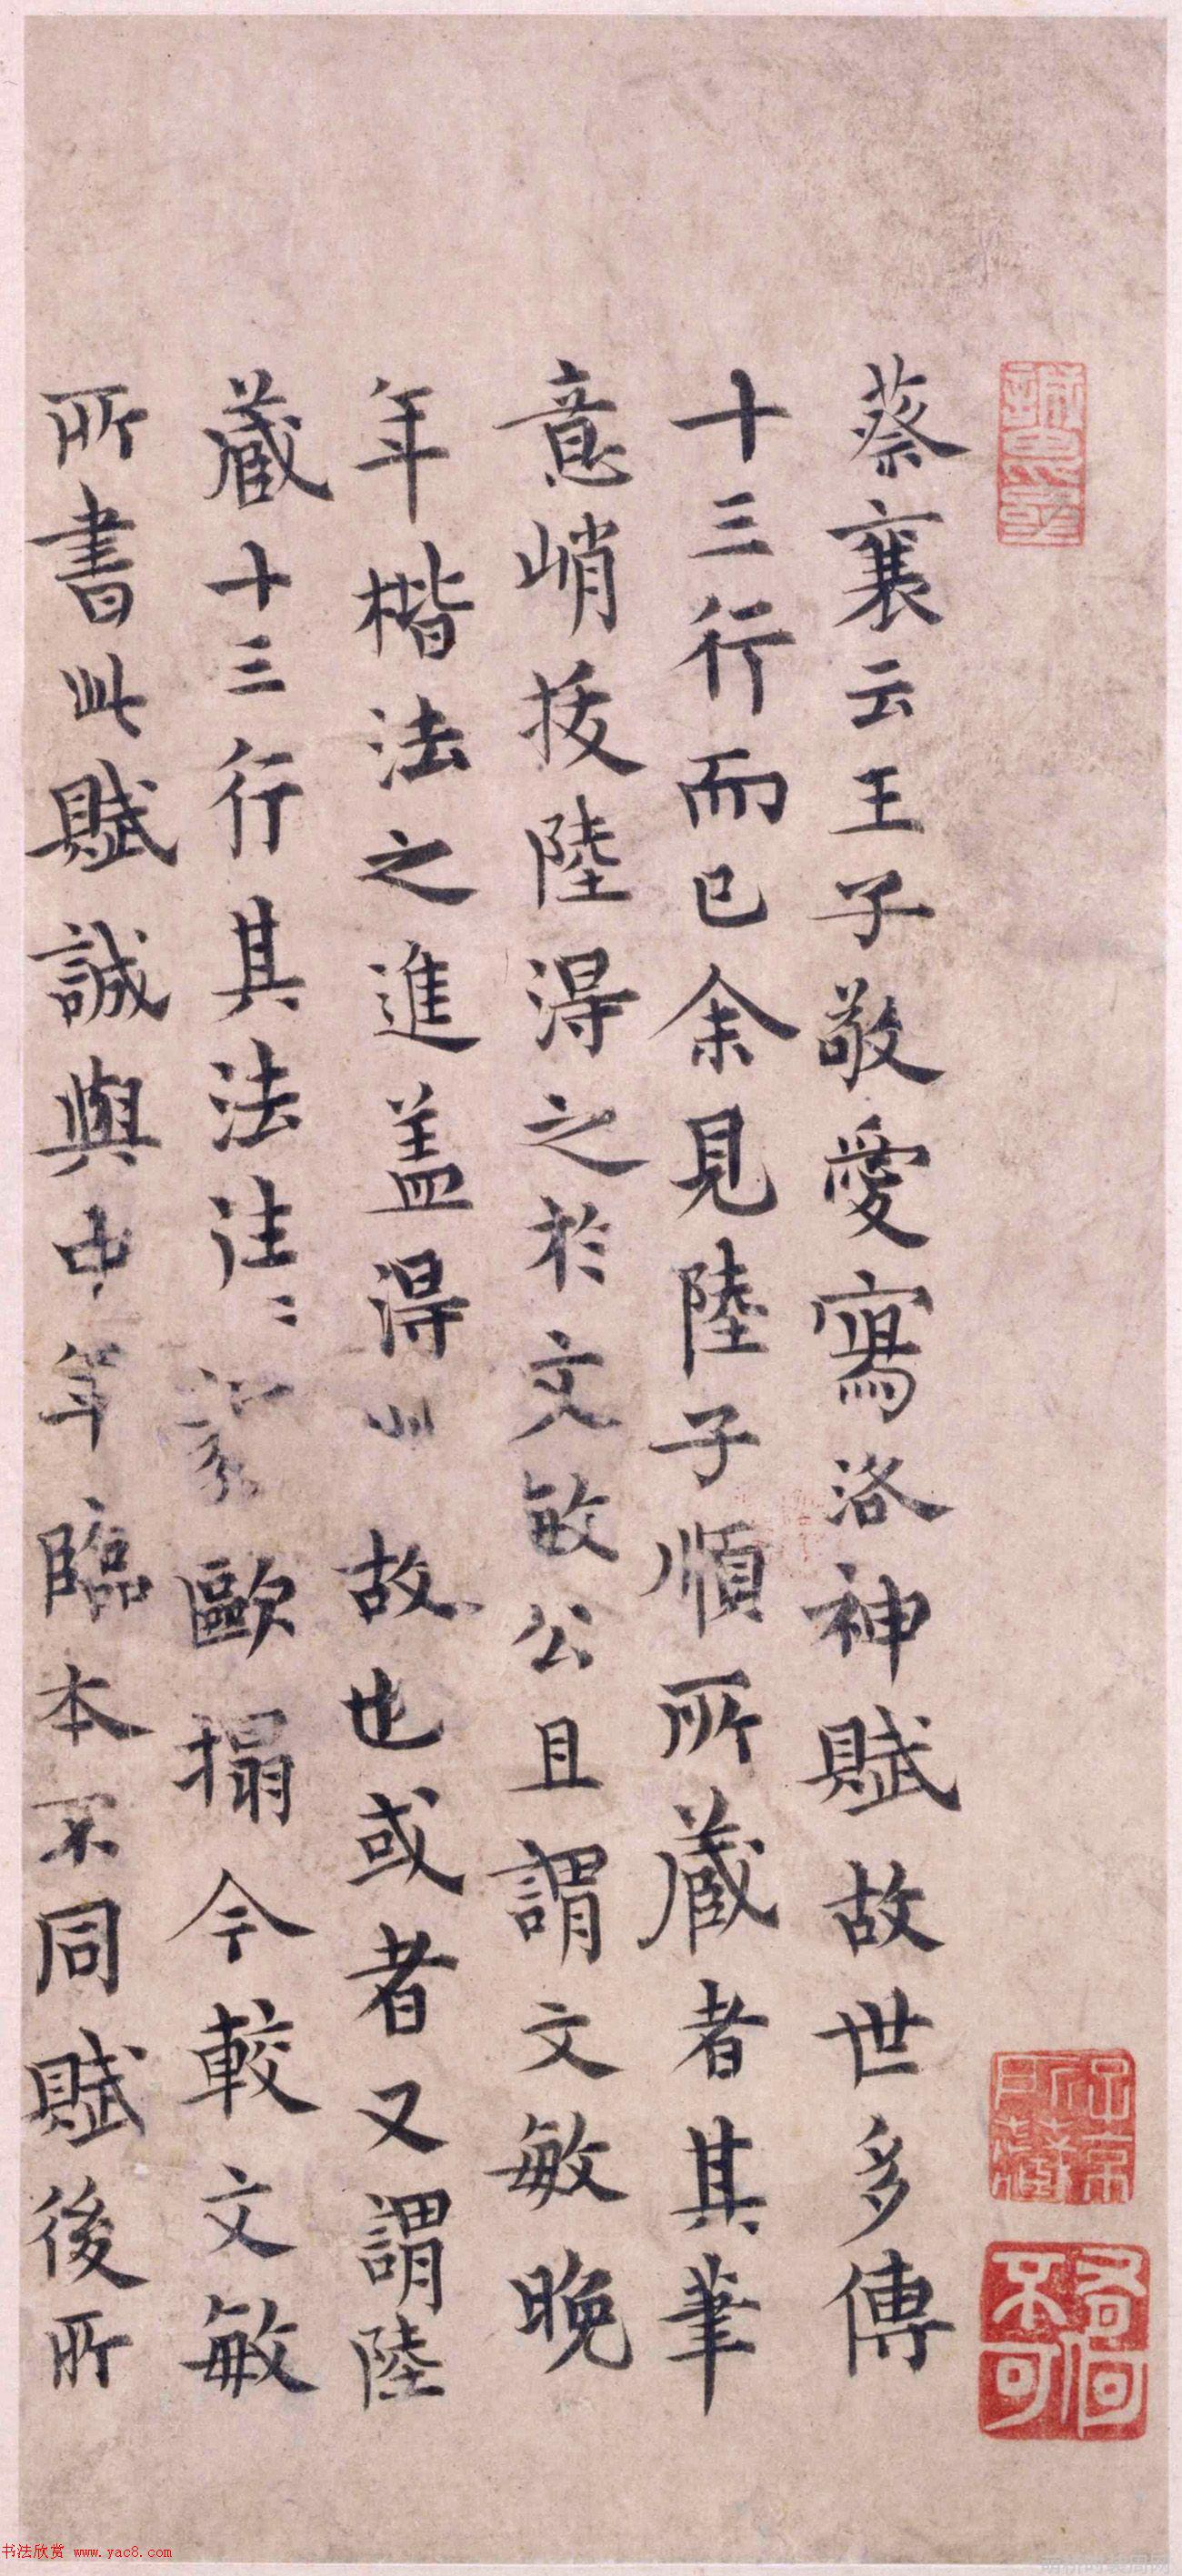 蔡襄云王子敬愛寫洛神賦故世多傳
十三行而已余見陸子順所蔵者其筆
意峭拔陸得之於文敏公且謂文敏晚
年楷法之進盖得故也或者又謂陸
蔵十三行其法往〻歐搨今較文敏
所書此賦誠與中年臨本不同賦後所
书法欣赏 www.yac8.com